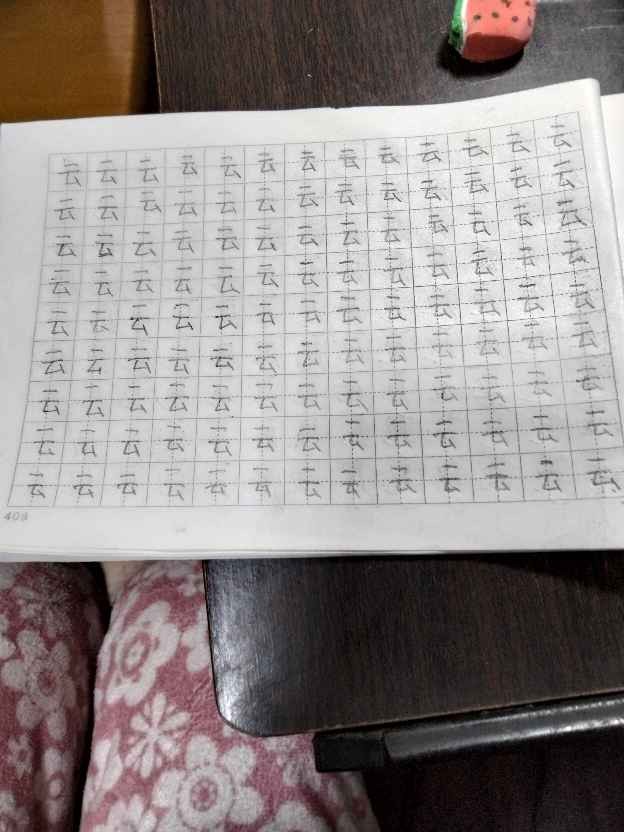 云云云云云云云云云云云云云
云云云云云云云云云云云云云
云云云云云云云云云云云云云
云云云云云云云云云云云云云
云云云云云云云云云云云云云
云云云云云云云云云云云云云
云云云云云云云云云云云云云
云云云云云云云云云云云云云
云云云云云云云云云云云云云